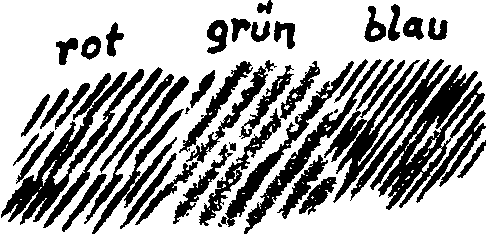 rot grün blau